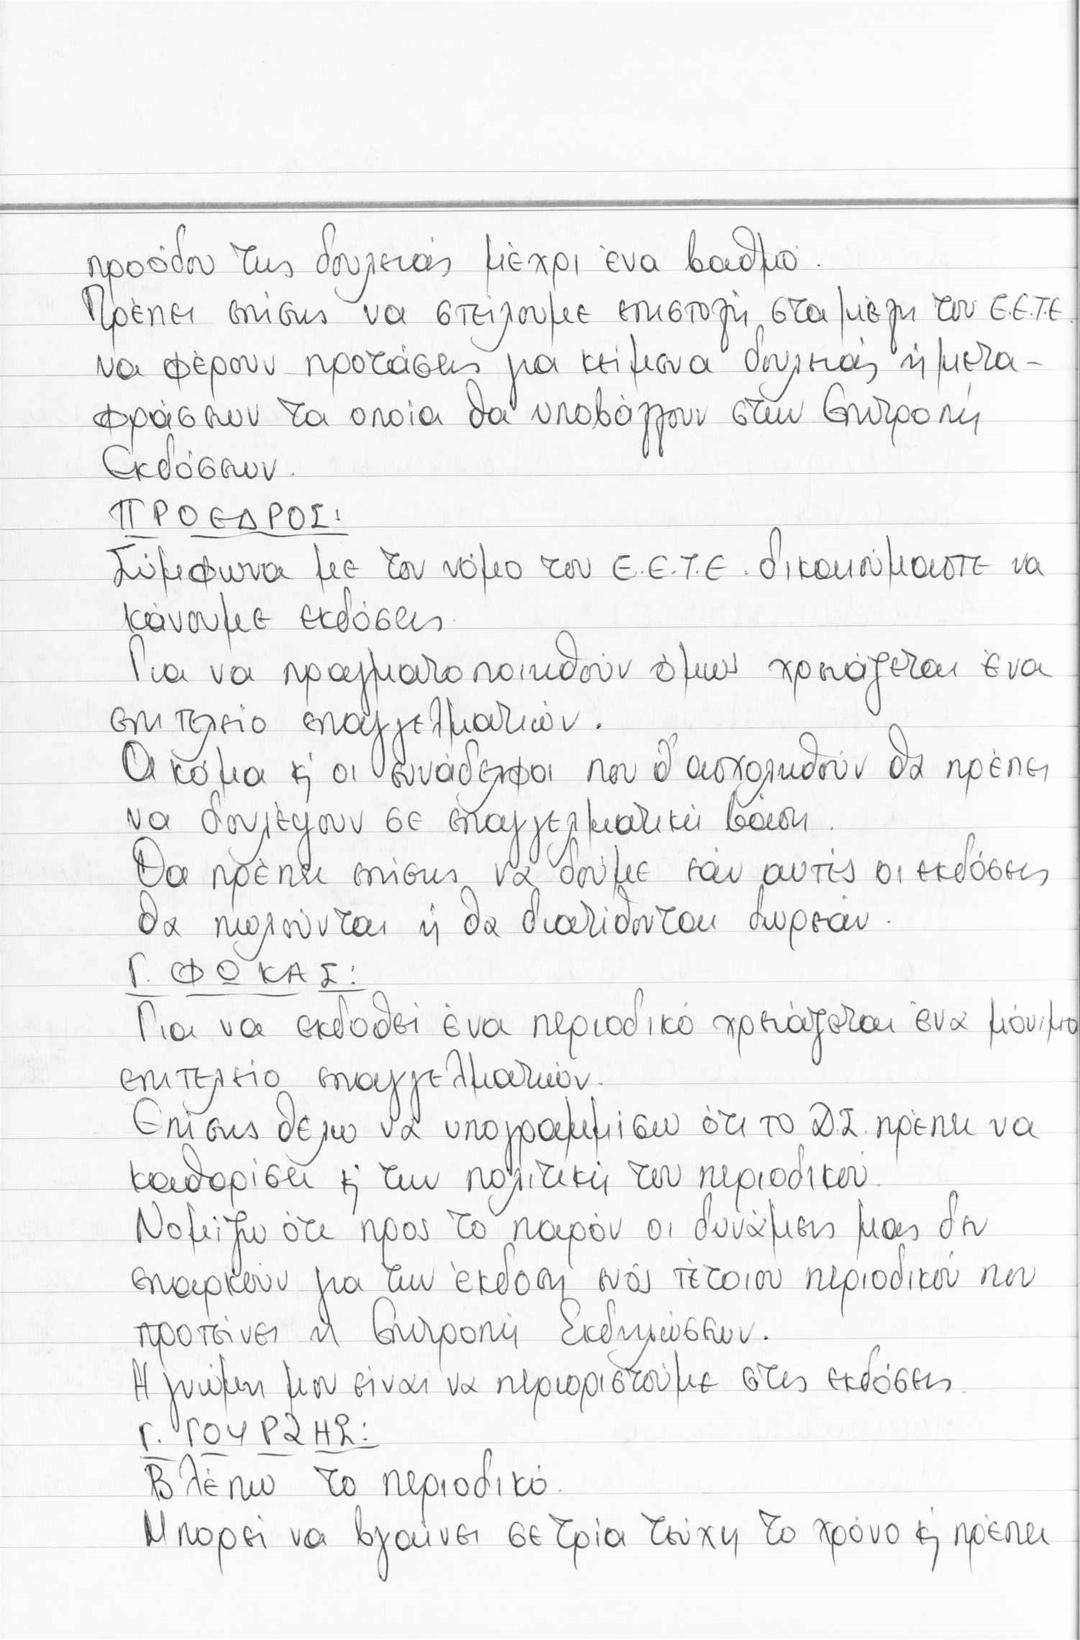 προόδου της δουλειάς μέχρι ένα βαθμό.
Πρέπει επίσης να στείλουμε επιστολή στα μέλη του Ε.Ε.Τ.Ε
να φέρουν προτάσεις για κείμενα δουλειάς ή μετα-
φράσεων τα οποία θα υποβάλλουν στην Επιτροπή
Εκδόσεων.
ΠΡΟΕΔΡΟΣ:
Σύμφωνα με τον νόμο του Ε.Ε.Τ.Ε. δικαιούμαστε να
κάνουμε εκδόσεις
Για να πραγματοποιηθούν όμως χρειάζεται ένα
επιτελείο επαγγελματιών.
Ακόμα κ' οι συνάδελφοι που θ' ασχοληθούν θα πρέπει
να δουλέψουν σε επαγγελματική βάση.
Θα πρέπει επίσης να δούμε εάν αυτές οι εκδόσεις
θα πωλούνται ή θα διατίθονται δωρεάν.
Γ. ΦΩΚΑΣ:
Για να εκδοθεί ένα περιοδικό χρειάζεται ένα μόνιμο
επιτελείο επαγγελματιών.
Επίσης θέλω να υπογραμμίσω ότι το Δ.Σ. πρέπει να
καθορίσει κ' την πολιτική του περιοδικού.
Νομίζω ότι προς το παρόν οι δυνάμεις μας δεν
επαρκούν για την έκδοση ενός τέτοιου περιοδικού που
προτείνει η Επιτροπή Εκδηλώσεων.
Η γνώμη μου είναι να περιοριστούμε στις εκδόσεις.
Γ. ΓΟΥΡΖΗΣ:
Βλέπω το περιοδικό.
Μπορεί να βγαίνει σε τρία τεύχη το χρόνο κ' πρέπει